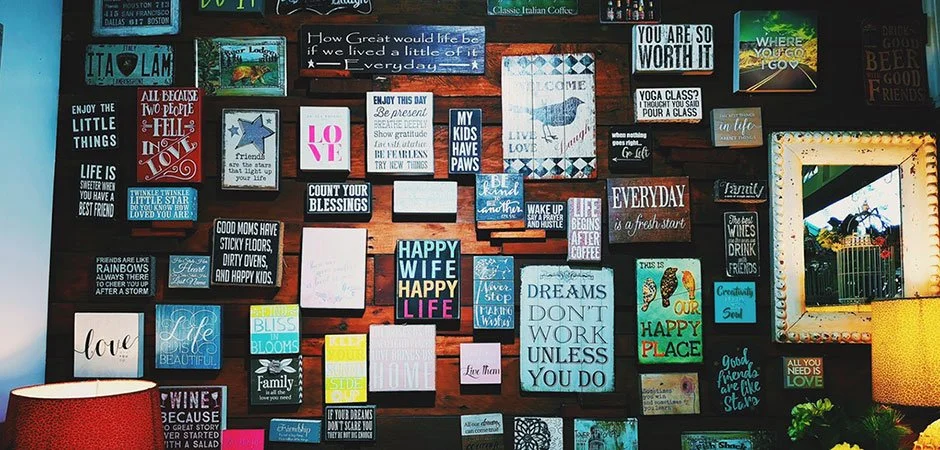 HOUSTON 713
DALLAS 817
BOSTON 617
Classic Italian Coffee
How Great would life be
if we lived a little of it
Everyday
YOU ARE SO
WORTH IT
WHERE
YOU GO
I GO
DRINK
GOOD
BEER
WITH
GOOD
FRIENDS
ITA LAM
ENJOY THE
LITTLE
THINGS
ALL BECAUSE
TWO PEOPLE
FELL
IN
LOVE
friends
are the stars
that light up
your life
LO
VE
ENJOY THIS DAY
Be present
BREATHE DEEPLY
Show gratitude
BE FEARLESS
TRY NEW THINGS
MY
KIDS
HAVE
PAWS
WELCOME
LIVE
Love
laugh
YOGA CLASS?
I THOUGHT YOU SAID
POUR A CLASS
when nothing
goes right...
Go Left
in life
LIFE IS
SWEETER WHEN
YOU HAVE A
BEST FRIEND
TWINKLE TWINKLE
LITTLE STAR
DO YOU KNOW HOW
LOVED YOU ARE
COUNT YOUR
BLESSINGS
BE kind
to one
another
WAKE UP
SAY A PRAYER
AND HUSTLE
LIFE
BEGINS
AFTER
COFFEE
EVERYDAY
is a fresh start
Family
THE BEST
WINES
ARE THE
ONES WE
DRINK
WITH
FRIENDS
GOOD MOMS HAVE
STICKY FLOORS,
DIRTY OVENS,
AND HAPPY KIDS
FRIENDS ARE LIKE
RAINBOWS
ALWAYS THERE
TO CHEER YOU UP
AFTER A STORM
HAPPY
WIFE
HAPPY
LIFE
Never
stop
MAKING
Wishes
DREAMS
DON'T
WORK
UNLESS
YOU DO
THIS IS
OUR
HAPPY
PLACE
Creativity
Soul
love
Life
BEAUTIFUL
BLISS
IN
BLOOMS
Family
is all the
love you
need
KEEP
YOUR
SUNNY
SIDE
UP
HOME
Live them
Good
friends
are like
stars
ALL YOU NEED IS
LOVE
WINE
BECAUSE
NO GREAT
STORY EVER
STARTED WITH
A SALAD
Friendship
IF YOUR DREAMS
DON'T SCARE YOU
THEY'RE NOT BIG ENOUGH
All our
dreams
can come
true
Sometimes you
win and